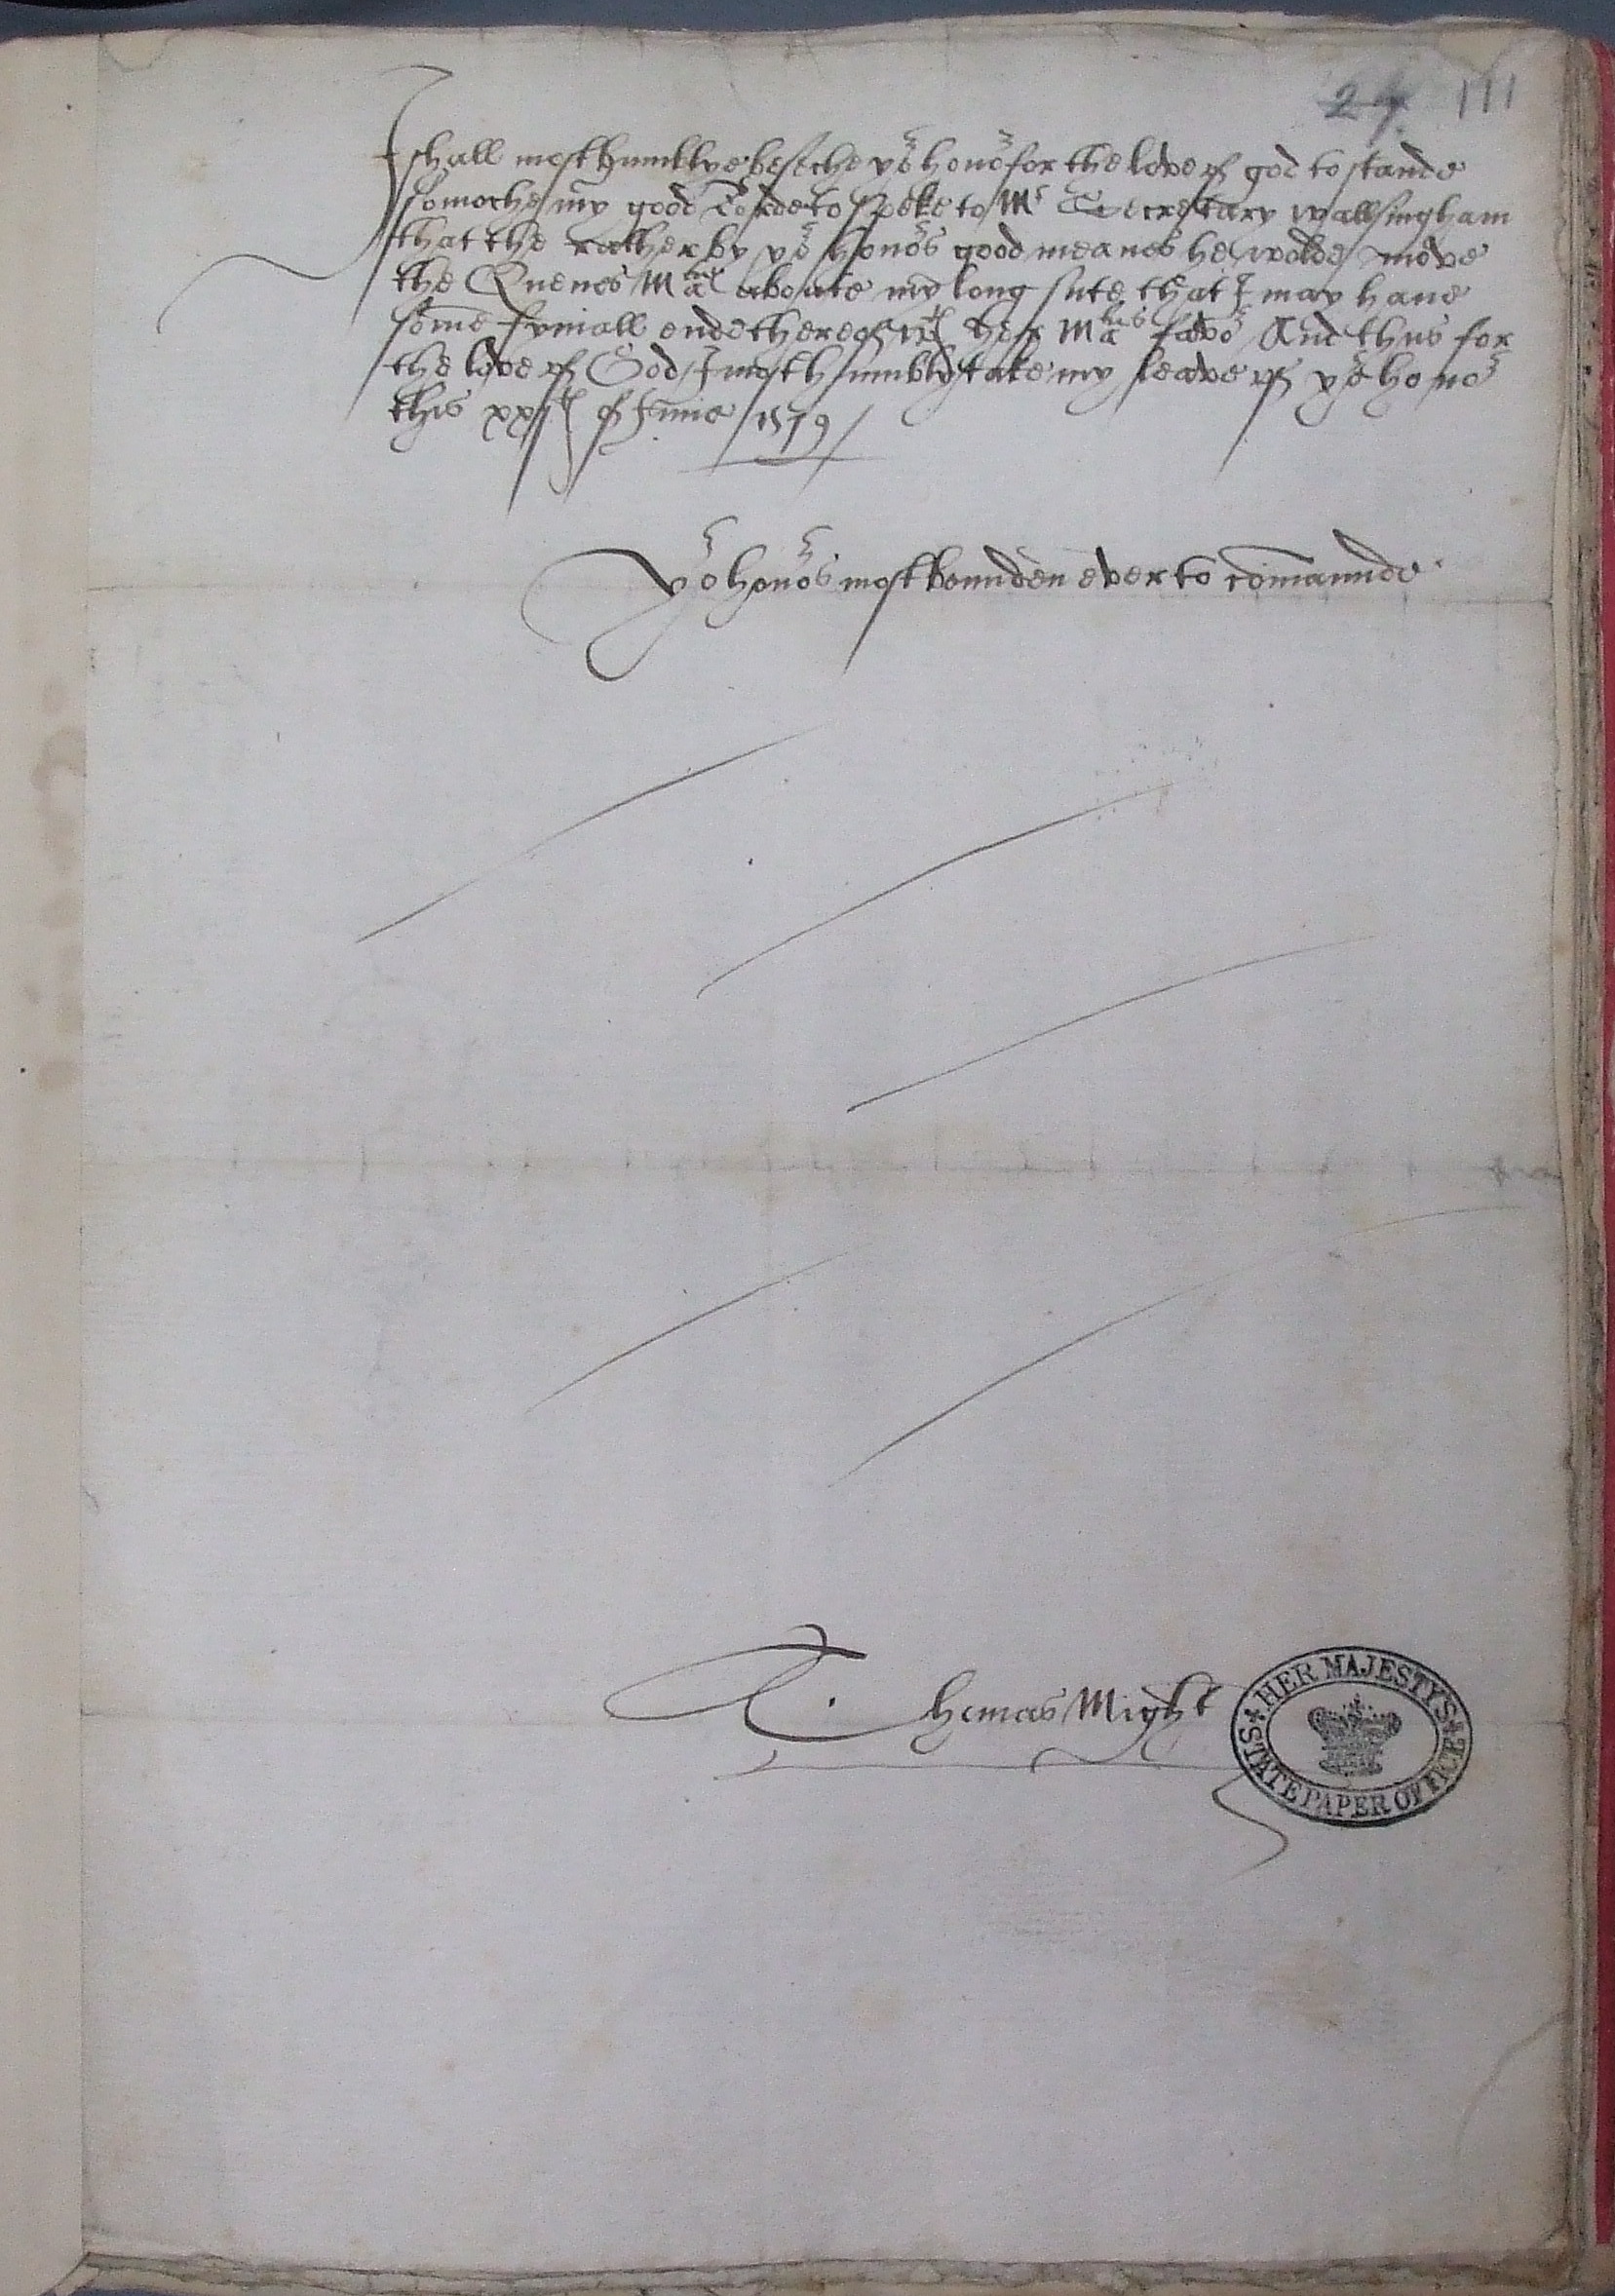 29 111
I shall most humblye beseche yor honor for the love of god to stande
somoche my good Lorde to speke to Mr Secretary wallsingham
that the rather by yor honors good meanes he wolde move
the Quenes Matie aboute my long sute that I may have
some fynall ende thereof wth her Maties favor And thus for
the love of God I most humbly take my leave of yor honor
this xxjth of Junie 1579
Yor honors most bounden ever to comaunde
Thomas Might
HER MAJESTYS
STATE PAPER OFFICE